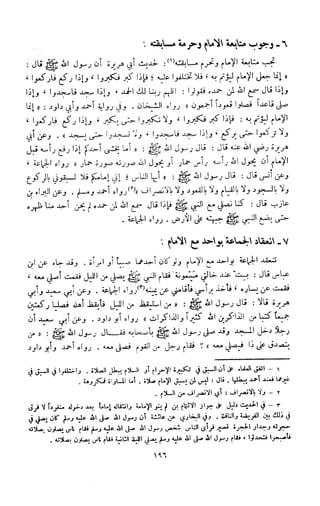 ٦ - وجوب متابعة الامام وحرمة مسابقته :
تجب متابعة الإمام وتحرم مسابقته(١): لحديث أبي هريرة أن رسول الله ﷺ قال :
« إنما جعل الإمام ليؤتم به ، فلا تختلفوا عليه ؛ فإذا كبر فكبروا ، وإذا ركع فاركعوا ،
وإذا قال سمع الله لمن حمده فقولوا : اللهم ربنا لك الحمد ، وإذا سجد فاسجدوا ، وإذا
صلى قاعداً فصلوا قعوداً أجمعون » رواه الشيخان . وفي رواية أحمد وأبي داود : « إنما
الإمام ليؤتم به : فإذا كبر فكبروا ، ولا تكبروا حتى يكبر ، وإذا ركع فاركعوا ،
ولا تركعوا حتى يركع ، وإذا سجد فاسجدوا ، ولا تسجدوا حتى يسجد » . وعن أبي
هريرة رضي الله عنه قال : قال رسول الله ﷺ : « أما يخشى أحدكم إذا رفع رأسه قبل
الإمام أن يحول الله رأسه رأس حمار أو يحول الله صورته صورة حمار » رواه الجماعة ،
وعن أنس قال : قال رسول الله ﷺ : « أيها الناس ؛ إني إمامكم فلا تسبقوني بالركوع
ولا بالسجود ولا بالقيام ولا بالقعود ولا بالانصراف »(٢) رواه أحمد ومسلم . وعن البراء بن
عازب قال : كنا نصلي مع النبي ﷺ فإذا قال سمع الله لمن حمده لم يحن أحد منا ظهره
حتى يضع النبي ﷺ جبهته على الأرض . رواه الجماعة .
٧ - انعقاد الجماعة بواحد مع الامام :
تنعقد الجماعة بواحد مع الإمام ولو كان أحدهما صبياً أو امرأة . وقد جاء عن ابن
عباس قال : بت عند خالتي ميمونة فقام النبي ﷺ يصلي من الليل فقمت أصلي معه ،
فقمت عن يساره ، فأخذ برأسي فأقامني عن يمينه(٣) رواه الجماعة . وعن أبي سعيد وأبي
هريرة قالا : قال رسول الله ﷺ : « من استيقظ من الليل فأيقظ أهله فصليا ركعتين
جميعاً كتبا من الذاكرين الله كثيراً والذاكرات » رواه أبو داود . وعن أبي سعيد أن
رجلاً دخل المسجد وقد صلى رسول الله ﷺ بأصحابه فقال رسول الله ﷺ : « من
يتصدق على ذا فيصلي معه » ؟ فقام رجل من القوم فصلى معه . رواه أحمد وأبو داود
١ - اتفق العلماء على أن السبق في تكبيرة الإحرام أو السلام يبطل الصلاة . واختلفوا في السبق في
غيرها فعند أحمد يبطلها . قال : ليس لمن يسبق الإمام صلاة . أما المساواة فمكروهة .
٢ - ولا بالانصراف : أي الانصراف من السلام .
٣ - في الحديث دليل على جواز الائتمام بمن لم ينو الإمامة وانتقاله إماماً بعد دخوله منفرداً لا فرق
في ذلك بين الفريضة والنافلة . وفي البخاري عن عائشة أن رسول الله صلى الله عليه وسلم كان يصلي في
حجرته وجدار الحجرة قصير فرأى الناس شخص رسول الله صلى الله عليه وسلم فقام ناس يصلون بصلاته
فأصبحوا فتحدثوا ، فقام رسول الله صلى الله عليه وسلم يصلي الليلة الثانية فقام ناس يصلون بصلاته .
١٩٦